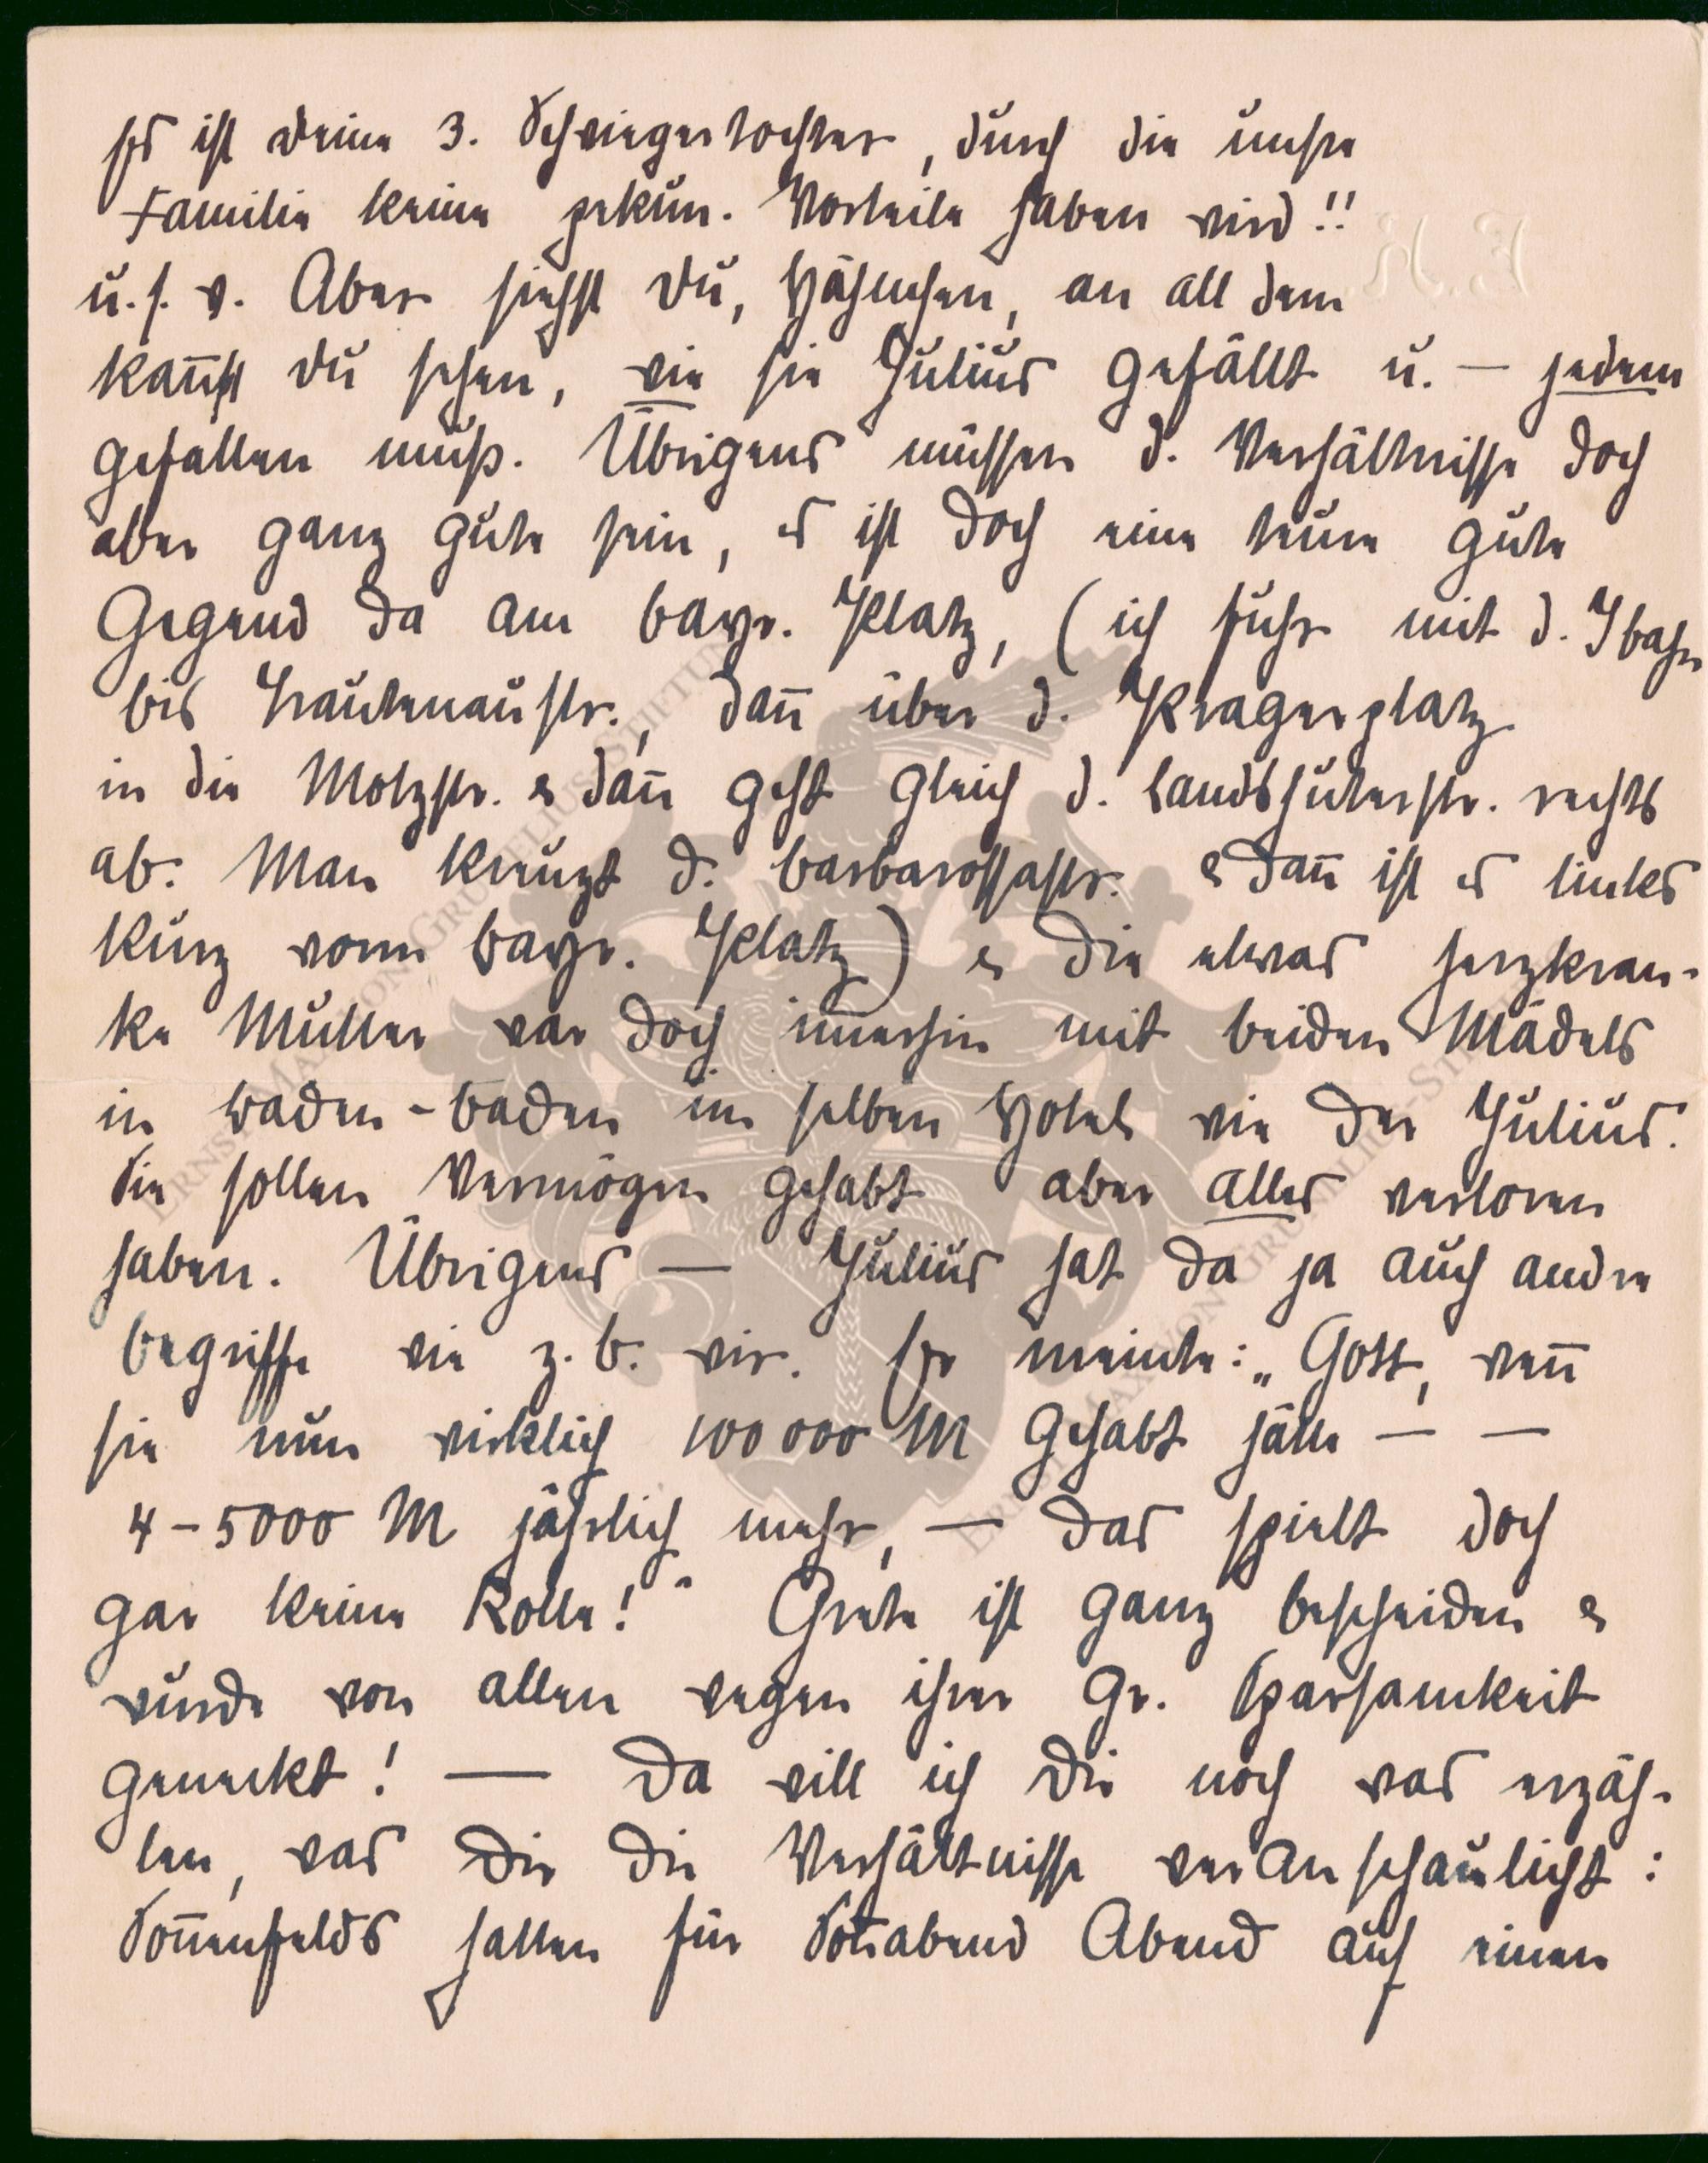 Es ist deine 3. Schwiegertochter, durch die unsre
Familie keine pekun. Vorteile haben wird!!
u. s. w. Aber siehst Du, Hähnchen, an all dem
kannst Du sehen, wie sie Julius gefällt u. — jedem
gefallen muß. Übrigens müssen d. Verhältnisse doch
aber ganz gute sein, es ist doch eine teure gute
Gegend da am bayr. Platz, (ich fuhr mit d. Ibahn
bis Trautenaustr., dan̄ über d. Pragerplatz
in die Motzstr. & dan̄ geht gleich d. Landshuterstr. rechts
ab. Man kreuzt d. Barbarossastr. & dan̄ ist es links
kurz vorm bayr. Platz) & die etwas herzkran-
ke Mutter war doch im̄erhin mit beiden Mädels
in Baden-Baden im selben Hotel wie der Julius.
Sie sollen Vermögen gehabt aber alles verloren
haben. Übrigens — Julius hat da ja auch andre
Begriffe wie z. B. wir. Er meinte: „Gott, wen̄
sie nun wirklich 100 000 M gehabt hätte — —
4 – 5000 M jährlich mehr, — das spielt doch
gar keine Rolle!" Grete ist ganz bescheiden &
wurde von allen wegen ihrer gr. Sparsamkeit
geneckt! — Da will ich Dir noch was erzäh-
len, was Dir die Verhältnisse veranschaulicht:
Son̄enfelds hatten für Son̄abend Abend auf einen
ERNST MAX VON GRUNELIUS-STIFTUNG
ERNST MAX VON GRUNELIUS-STIFTUNG